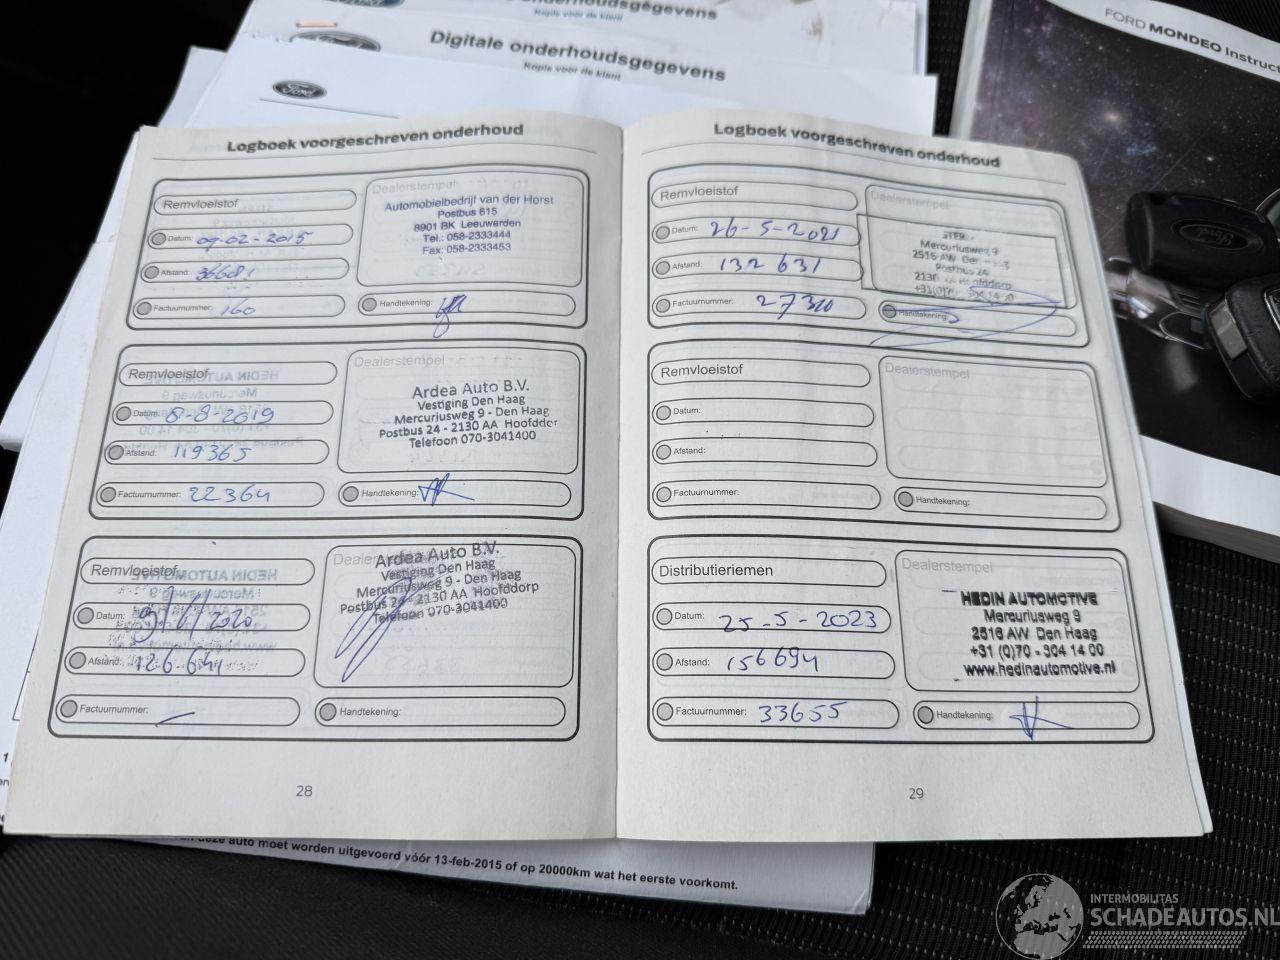 onderhoudsgegevens
Kopie voor de klant
Digitale onderhoudsgegevens
Kopie voor de klant
Ford
FORD MONDEO Instruct
Logboek voorgeschreven onderhoud
Remvloeistof
Dealerstempel
Automobielbedrijf van der Horst
Postbus 615
8901 BK Leeuwarden
Tel.: 058-2333444
Fax: 058-2333453
Datum: 09-02-2015
Afstand:
Factuurnummer: 160
Handtekening:
Remvloeistof
Dealerstempel
Ardea Auto B.V.
Vestiging Den Haag
Mercuriusweg 9 - Den Haag
Postbus 24 - 2130 AA Hoofddor
Telefoon 070-3041400
Datum: 8-8-2019
Afstand: 119365
Factuurnummer: 22364
Handtekening:
Remvloeistof
Dealerstempel
Ardea Auto B.V.
Vestiging Den Haag
Mercuriusweg 9 - Den Haag
Postbus 24 - 2130 AA Hoofddorp
Telefoon 070-3041400
Datum:
Afstand: 126.641
Factuurnummer:
Handtekening:
28
Logboek voorgeschreven onderhoud
Remvloeistof
Dealerstempel
Mercuriusweg 9
2516 AW Den
Postbus 24
Datum: 26-5-2021
Afstand: 132 631
Factuurnummer:
Handtekening:
Remvloeistof
Dealerstempel
Datum:
Afstand:
Factuurnummer:
Handtekening:
Distributieriemen
Dealerstempel
HEDIN AUTOMOTIVE
Mercuriusweg 9
2516 AW Den Haag
+31 (0)70 - 304 14 00
www.hedinautomotive.nl
Datum: 25-5-2023
Afstand: 156694
Factuurnummer: 33655
Handtekening:
29
deze auto moet worden uitgevoerd vóór 13-feb-2015 of op 20000km wat het eerste voorkomt.
INTERMOBILITAS
SCHADEAUTOS.NL